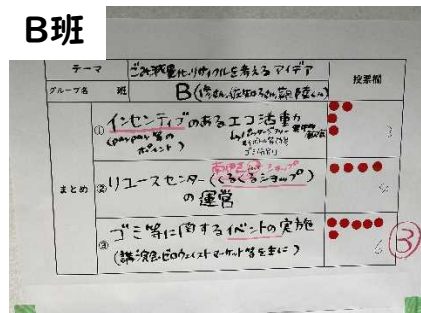 B班
テーマ ごみ減量化、リサイクルを考えるアイデア 投票欄
グループ名 班 B
まとめ
① インセンティブのあるエコ活動
(paypay等のポイント)
3
② リユースセンター(くるくるショップ)
の運営
4
③ ゴミ等に関するイベントの実施
(講演会、ゼロウェイストマーケット等を主に)
6
③